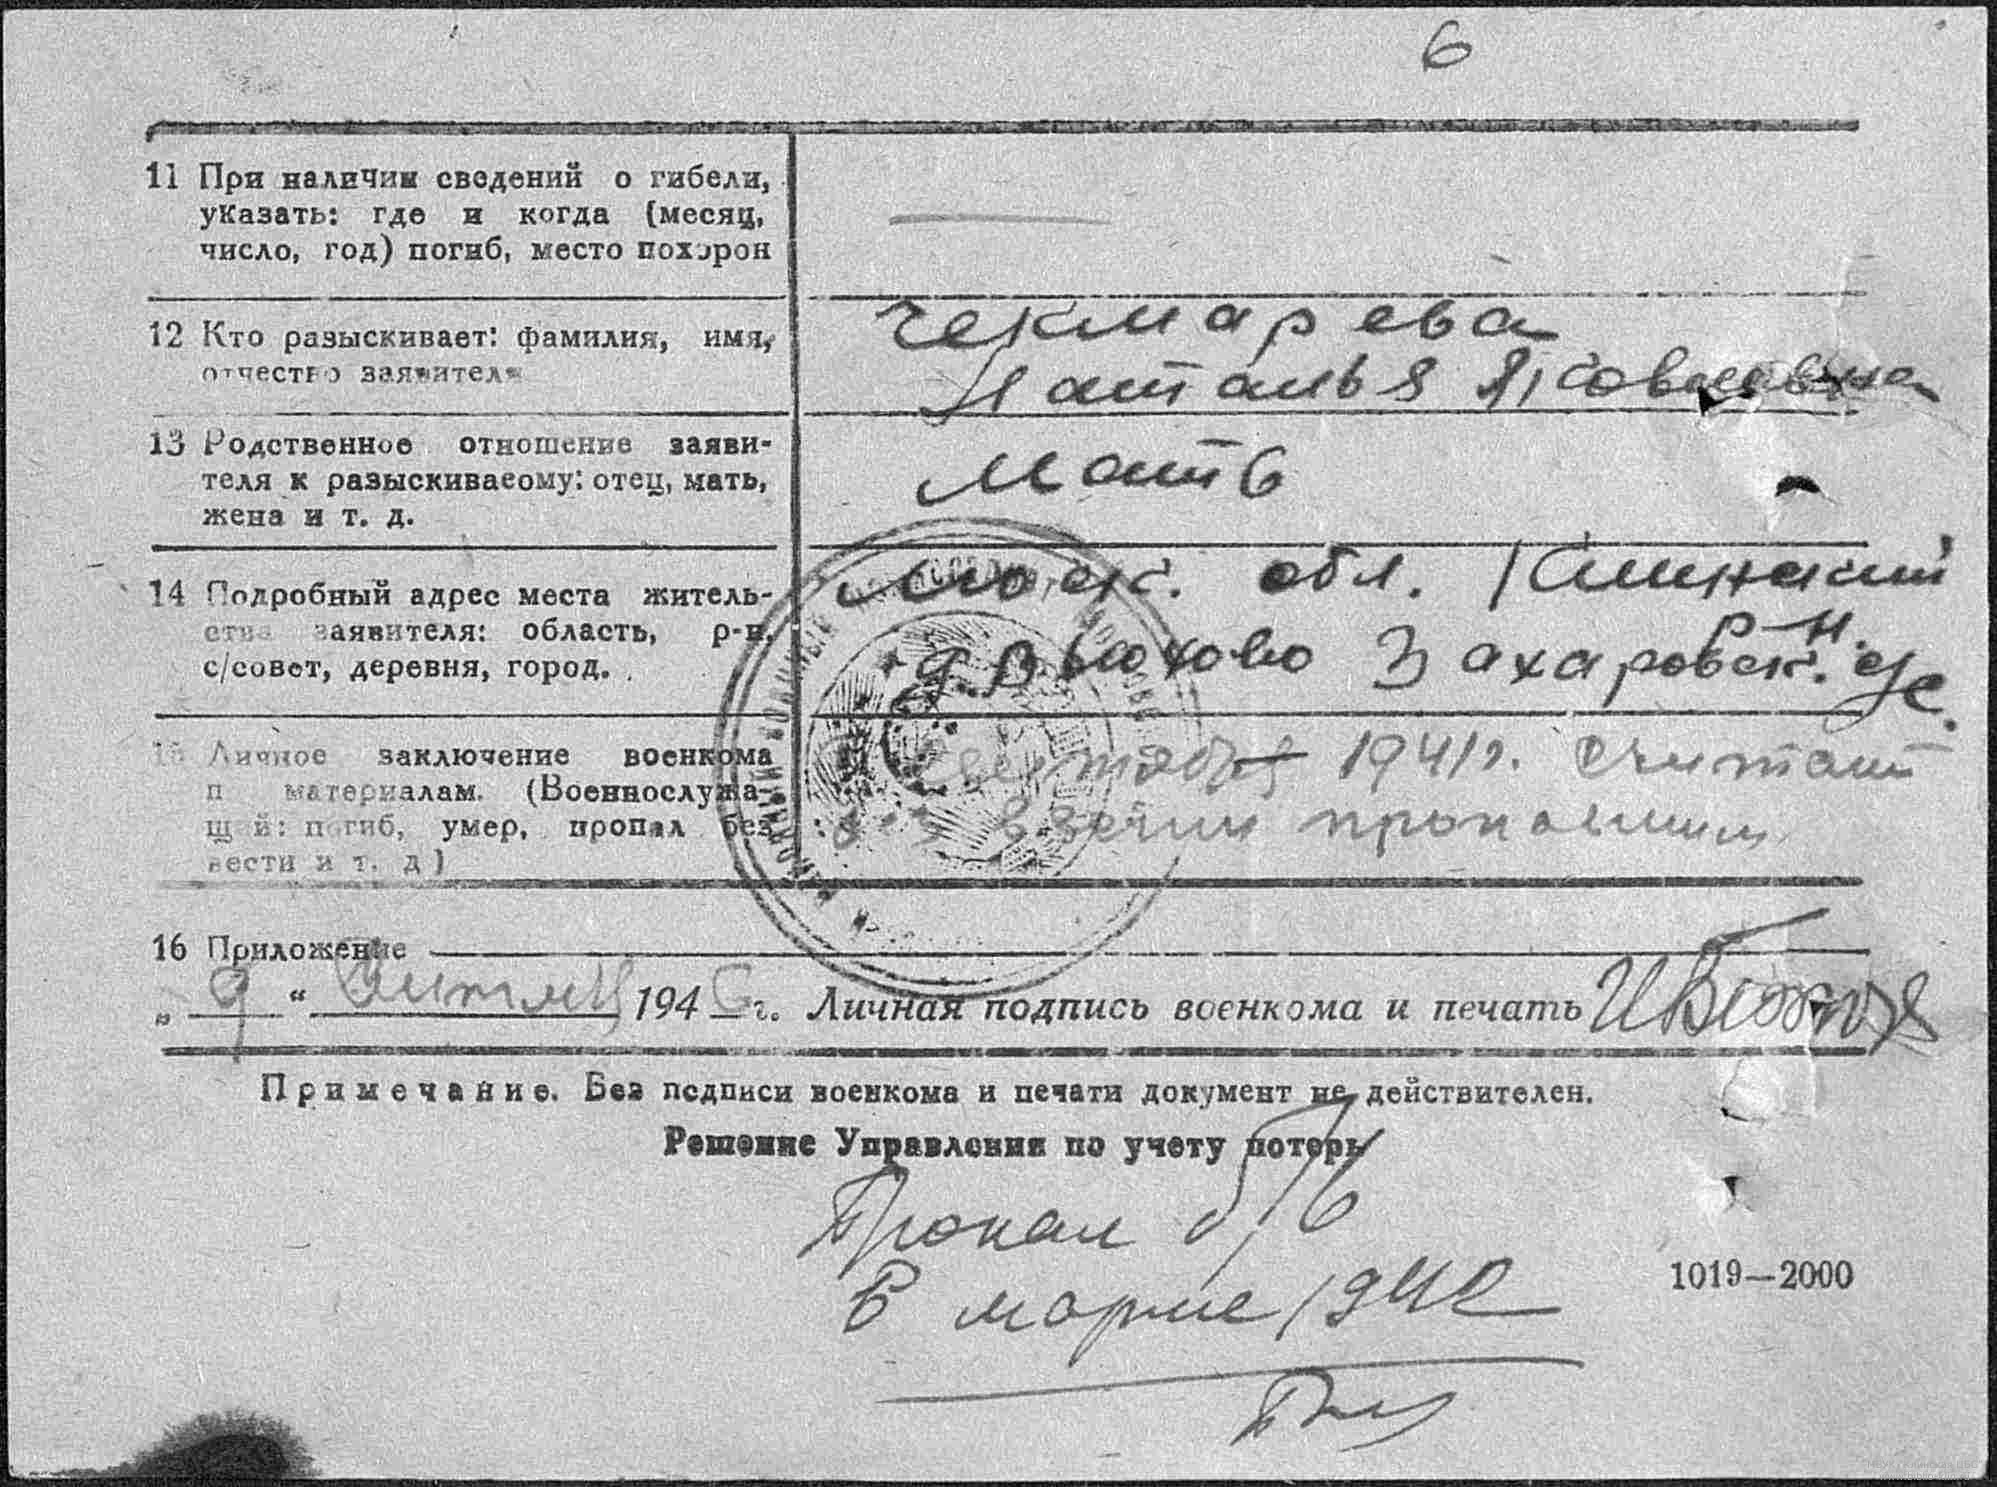 6
11 При наличии сведений о гибели,
указать: где и когда (месяц,
число, год) погиб, место похорон
12 Кто разыскивает: фамилия, имя,
отчество заявителя
Чекмарева
Наталья Яковлевна
13 Родственное отношение заяви-
теля к разыскиваеому: отец, мать,
жена и т. д.
мать
14 Подробный адрес места житель-
ства заявителя: область, р-н,
с/совет, деревня, город.
Моск. обл. Клинский
р-н.
д. Вьюхово Захаровск. с/с.
15 Личное заключение военкома
п материалам. (Военнослужа-
щий: погиб, умер, пропал без
вести и т. д)
Сентябрь 1941г. считать
без вести пропавшим
16 Приложение
„ 9 “ 1946 г. Личная подпись военкома и печать
Примечание. Без подписи военкома и печати документ не действителен.
Решение Управления по учету потерь
Пропал б/в
в марте 1942
1019—2000